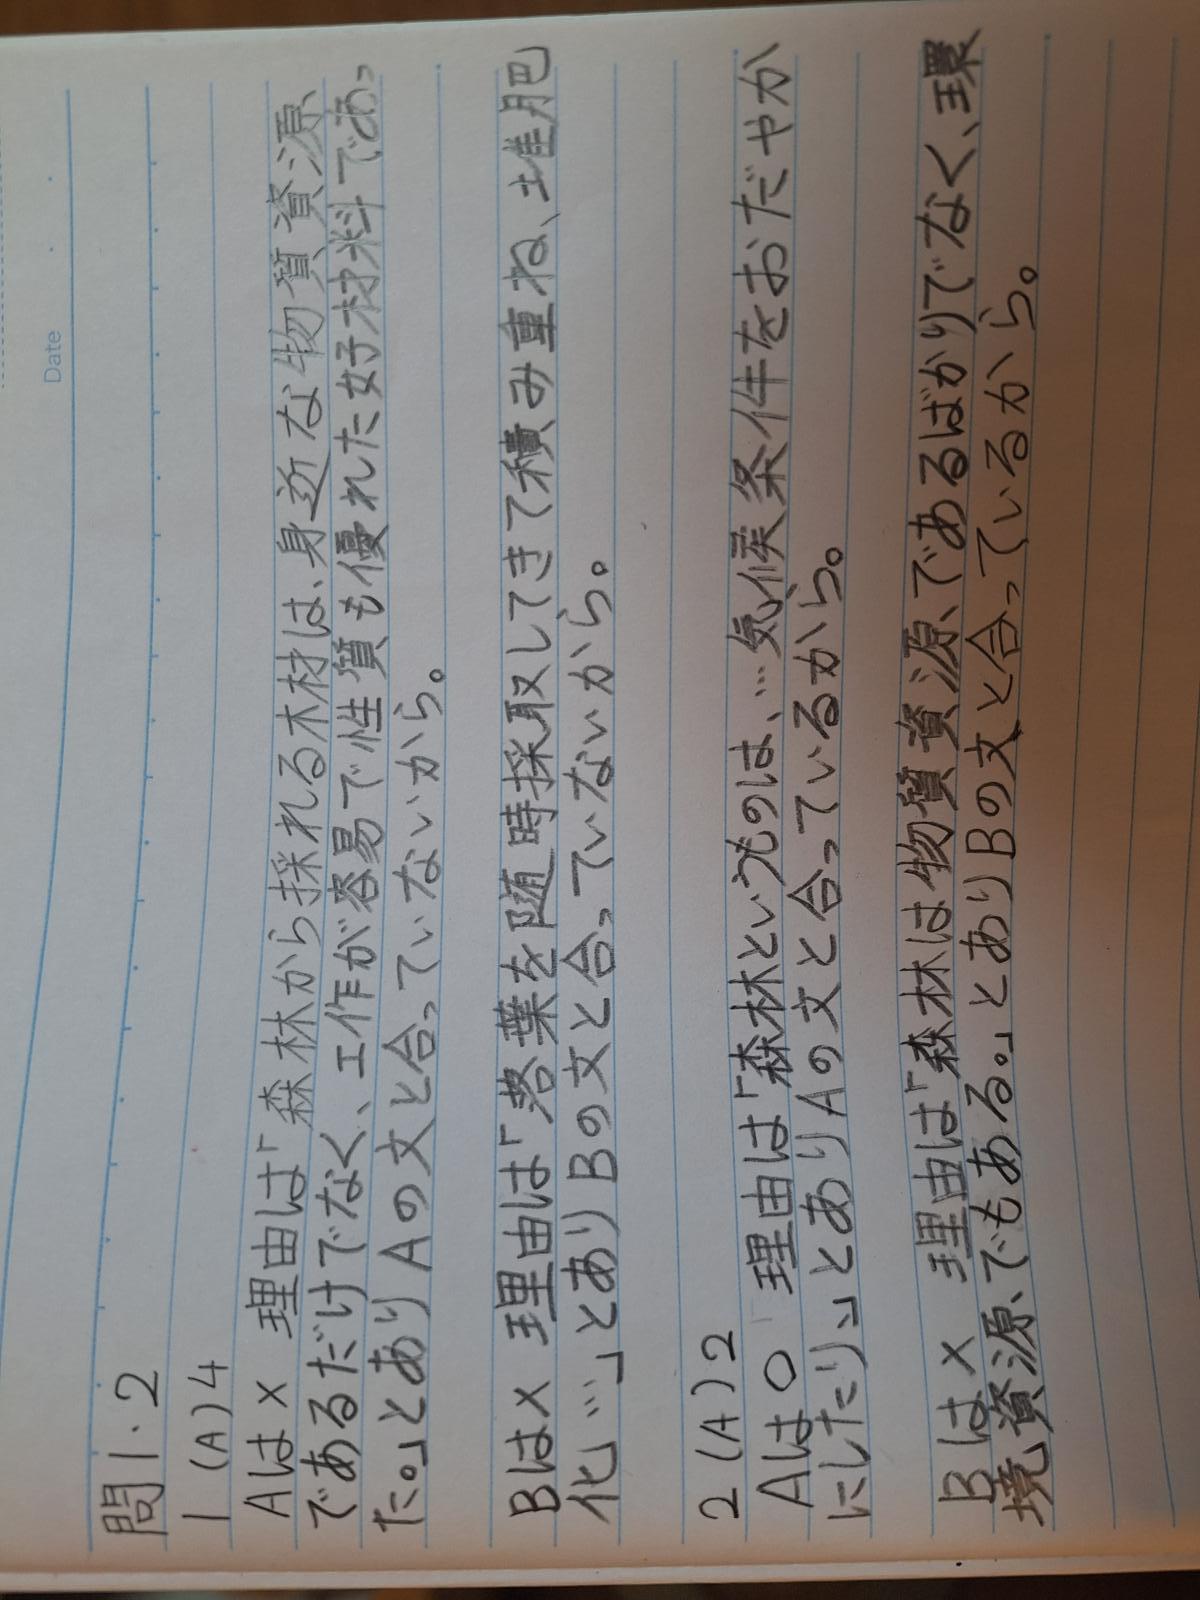 Date
問1.2
1 (A)4
Aは× 理由は「森林から採れる木材は、身近な物質資源
であるだけでなく、工作が容易で性質も優れた好材料であっ
た。」とありAの文と合っていないから。
Bは× 理由は「落葉を随時採取してきて積み重ね、堆肥
化…」とありBの文と合っていないから。
2 (A)2
Aは○ 理由は「森林というものは、…気候条件をおだやか
にしたり、」とありAの文と合っているから。
Bは× 理由は「森林は物質資源、であるばかりでなく、環
境資源、でもある。」とありBの文と合っているから。